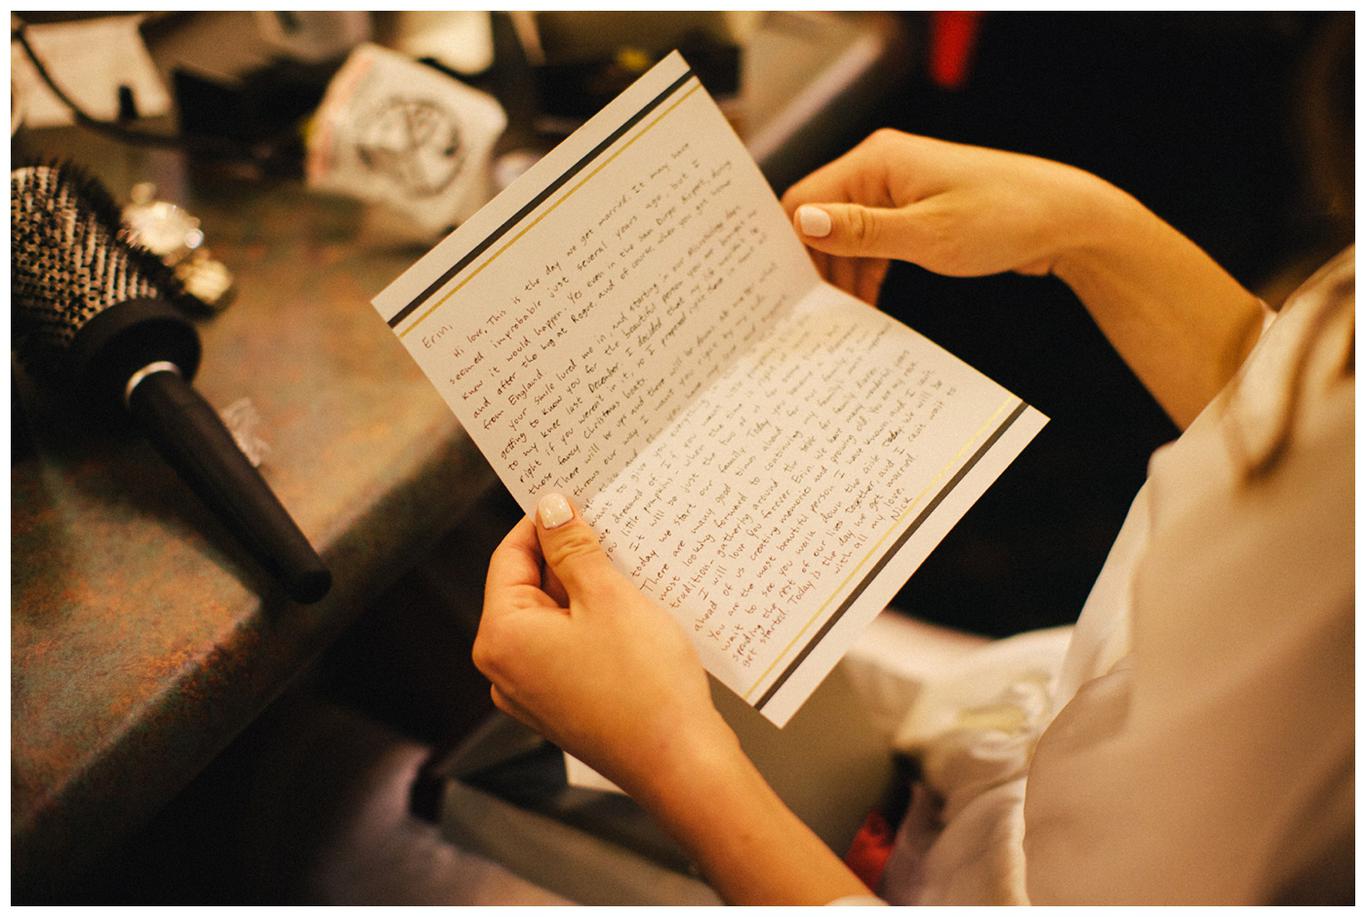 Erin,
Hi love, This is the day we get married. It may have
seemed improbable just several years ago, but I
knew it would happen. Yes even in the San Diego Airport,
and after the hug at Rogue, and of course, when you got home
from England
your smile lured me in, and starting in our Microbiology days
getting to know you for the beautiful person you are brought me
to my knee last December. I decided that my life wouldn't be
right if you weren't in it, so I proposed right there in front of all
those fancy Christmas boats.
There will be ups and there will be downs no matter what
throws our way. I want you right by my side.
want to give you everything
dreamed of. If you want
you little pumpkin, when the time is right
It will be just the two of
today we start our family. Today
There are many good times ahead for our
most looking forward to continuing my family's
tradition- gathering around the table for family dinner.
I will love you forever Erin. We have many wonderful years
ahead of us creating memories and growing old. You are my rock
You are the most beautiful person I have known, and I can't
wait to see you walk down the aisle today. We will be
spending the rest of our lives together, and I can't wait to
get started. Today is the day we get married.
with all my love,
Nick